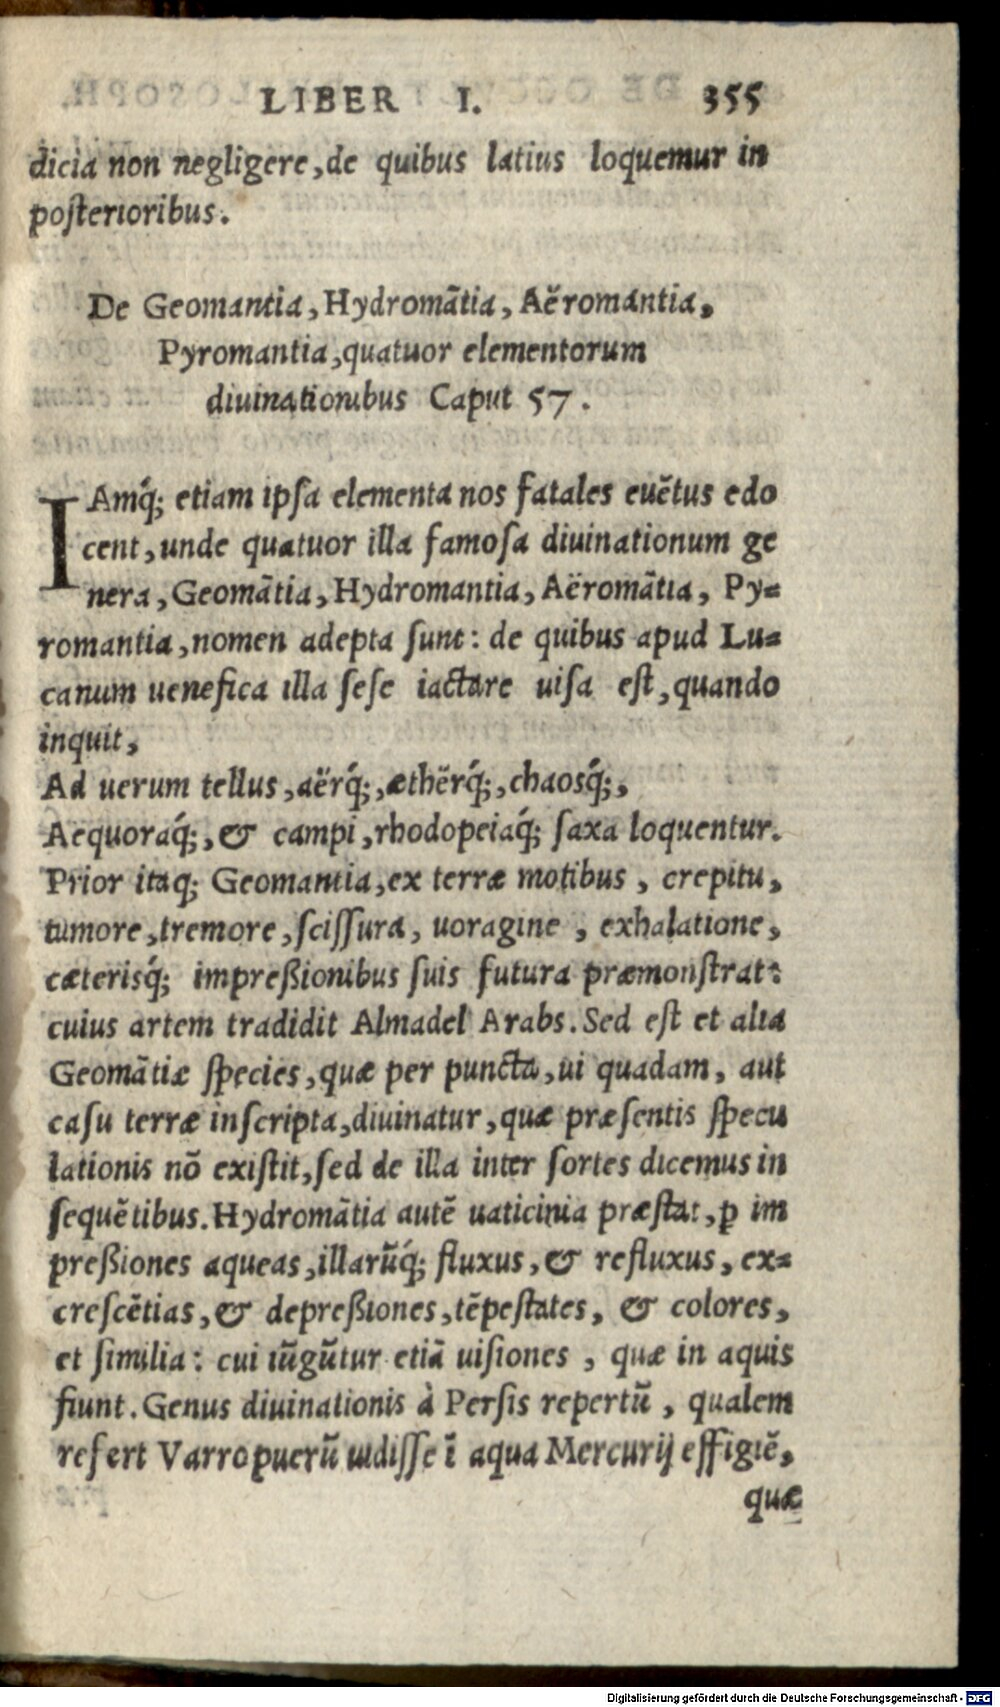 LIBER I. 355
dicia non negligere, de quibus latius loquemur in
posterioribus.
De Geomantia, Hydromãtia, Aëromantia,
Pyromantia, quatuor elementorum
diuinationibus Caput 57.
IAmq́; etiam ipsa elementa nos fatales euẽtus edo
cent, unde quatuor illa famosa diuinationum ge
nera, Geomãtia, Hydromantia, Aëromãtia, Py=
romantia, nomen adepta sunt: de quibus apud Lu=
canum uenefica illa sese iactare uisa est, quando
inquit,
Ad uerum tellus, aërq́;, æthërq́;, chaosq́;,
Aequoraq́;, & campi, rhodopeiaq́; saxa loquentur.
Prior itaq; Geomantia, ex terræ motibus, crepitu,
tumore, tremore, scissura, uoragine, exhalatione,
cæterisq́; impreßionibus suis futura præmonstrat:
cuius artem tradidit Almadel Arabs. Sed est et alia
Geomãtiæ species, quæ per puncta, ui quadam, aut
casu terræ inscripta, diuinatur, quæ præsentis specu
lationis nõ existit, sed de illa inter sortes dicemus in
sequẽtibus. Hydromãtia autẽ uaticinia præstat, ꝑ im
preßiones aqueas, illarũq́; fluxus, & refluxus, ex=
crescẽtias, & depreßiones, tẽpestates, & colores,
et similia: cui iũgũtur etiã uisiones, quæ in aquis
fiunt. Genus diuinationis à Persis repertũ, qualem
refert Varro puerũ uidisse ĩ aqua Mercurij effigiẽ,
quæ
Digitalisierung gefördert durch die Deutsche Forschungsgemeinschaft - DFG